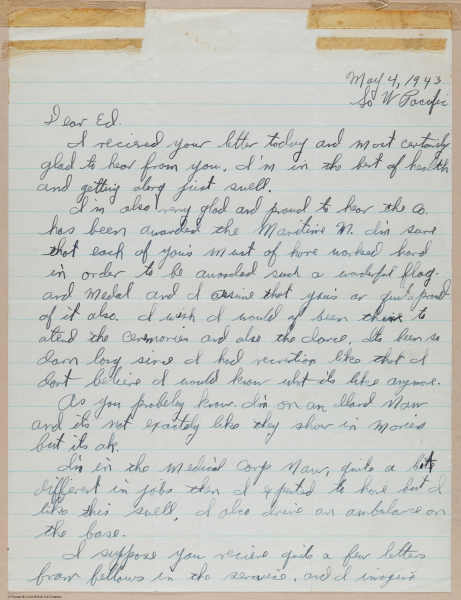 May 4, 1943
So W Pacific
Dear Ed.
I recieved your letter today and most certainly
glad to hear from you, I'm in the best of health
and getting along just swell.
I'm also very glad and proud to hear the Co.
has been awarded the Maritime M. I'm sure
that each of you's must of have worked hard
in order to be awarded such a waderful flag.
and Medal and I assime that you's ar quite proud
of it also. I wish I would of been there to
atend the Ceremories and also the dance, Its been so
darn long since I had recreation like that I
dont believe I would know what its like anymore.
As you probeley know I'm on an Iland Naw
and its not exactely like they show in Movies
but its ok.
I'm in the Medical Corp Naw, quite a bit
different in jobs then I expected to have but I
like this swell, I also drive an ambulance on
the base.
I suppose you recieve quite a few letters
from fellows in the service, and I imagine